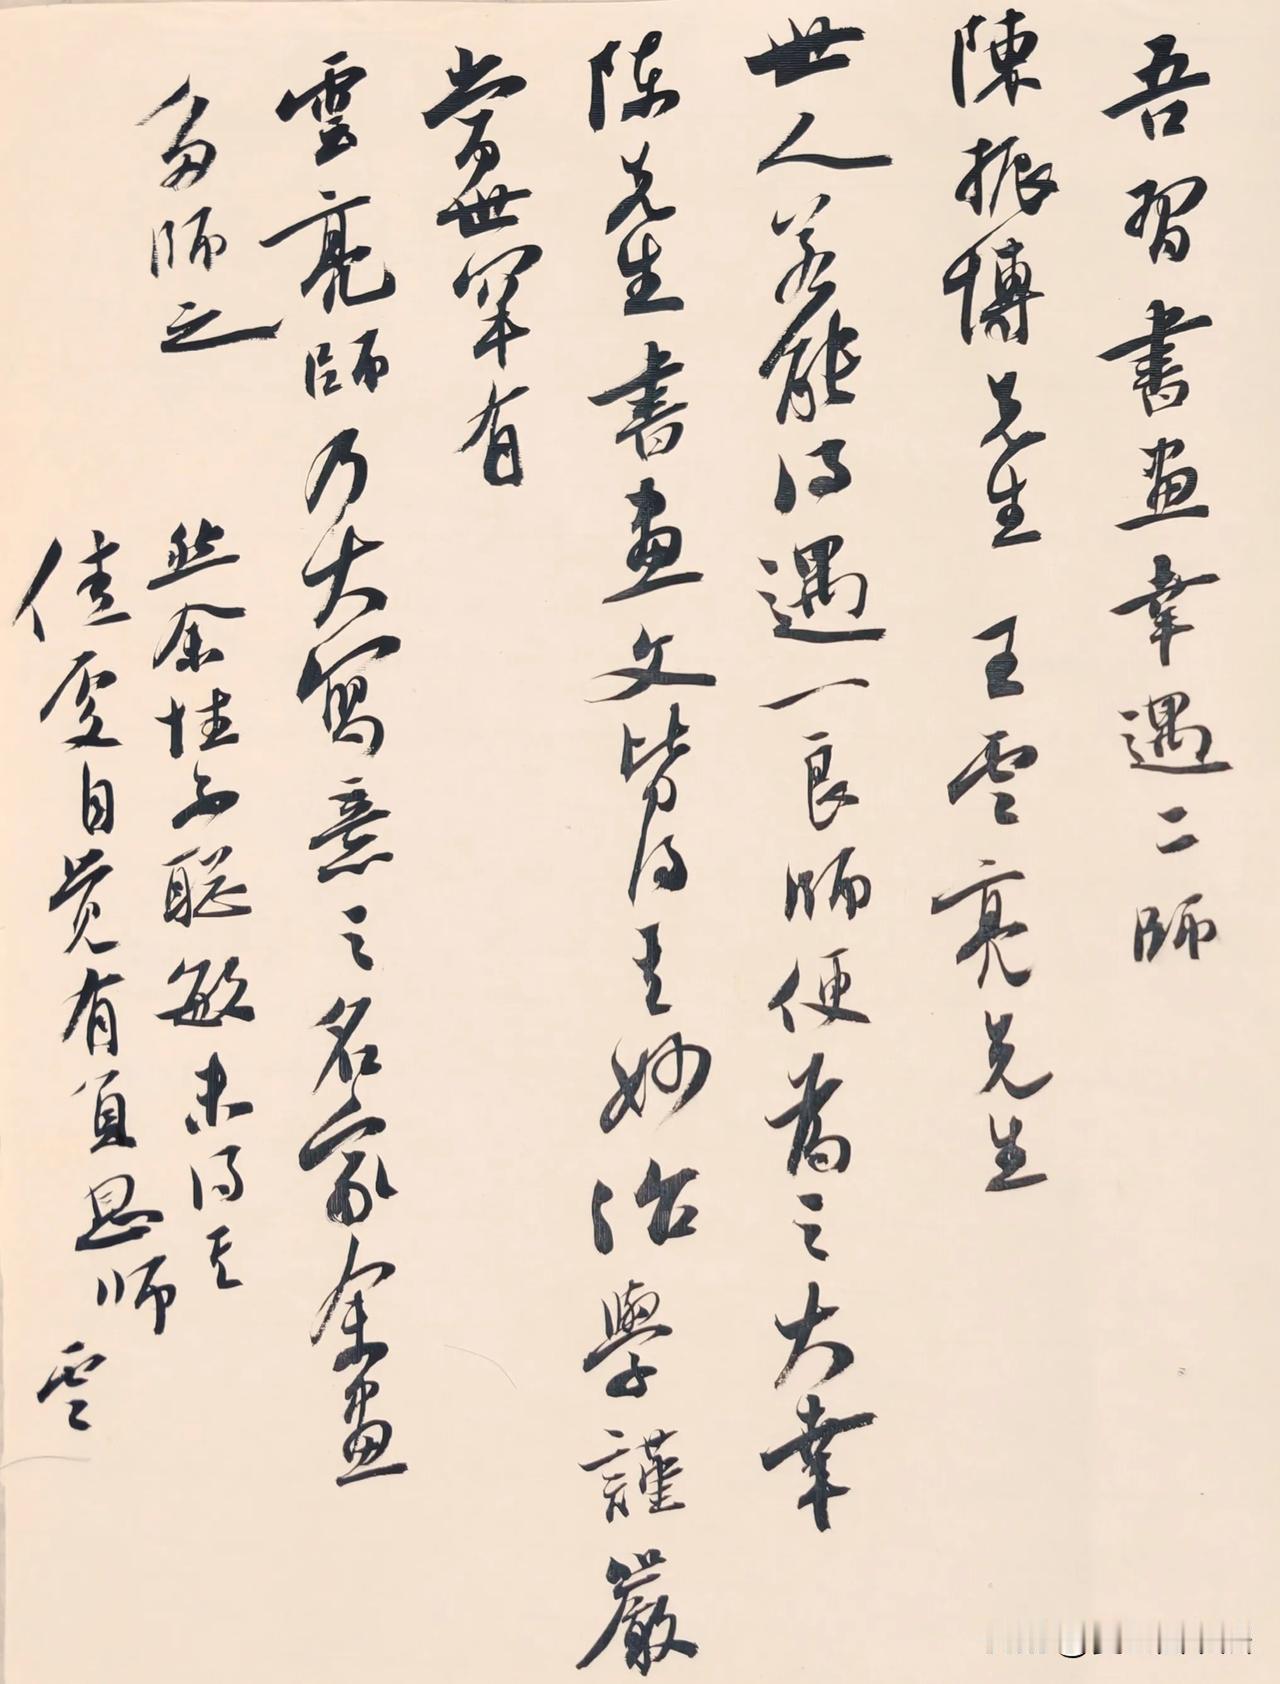 吾習書畫幸遇二師
陳振傳先生王雲亮先生
世人若能得遇一良師便為之大幸
陈先生書畫文皆得其妙治學謹嚴
當世罕有
雲亮師乃大寫意之名家余畫
多師之
然余性不聪敏未得其
佳处自觉有負恩师雲